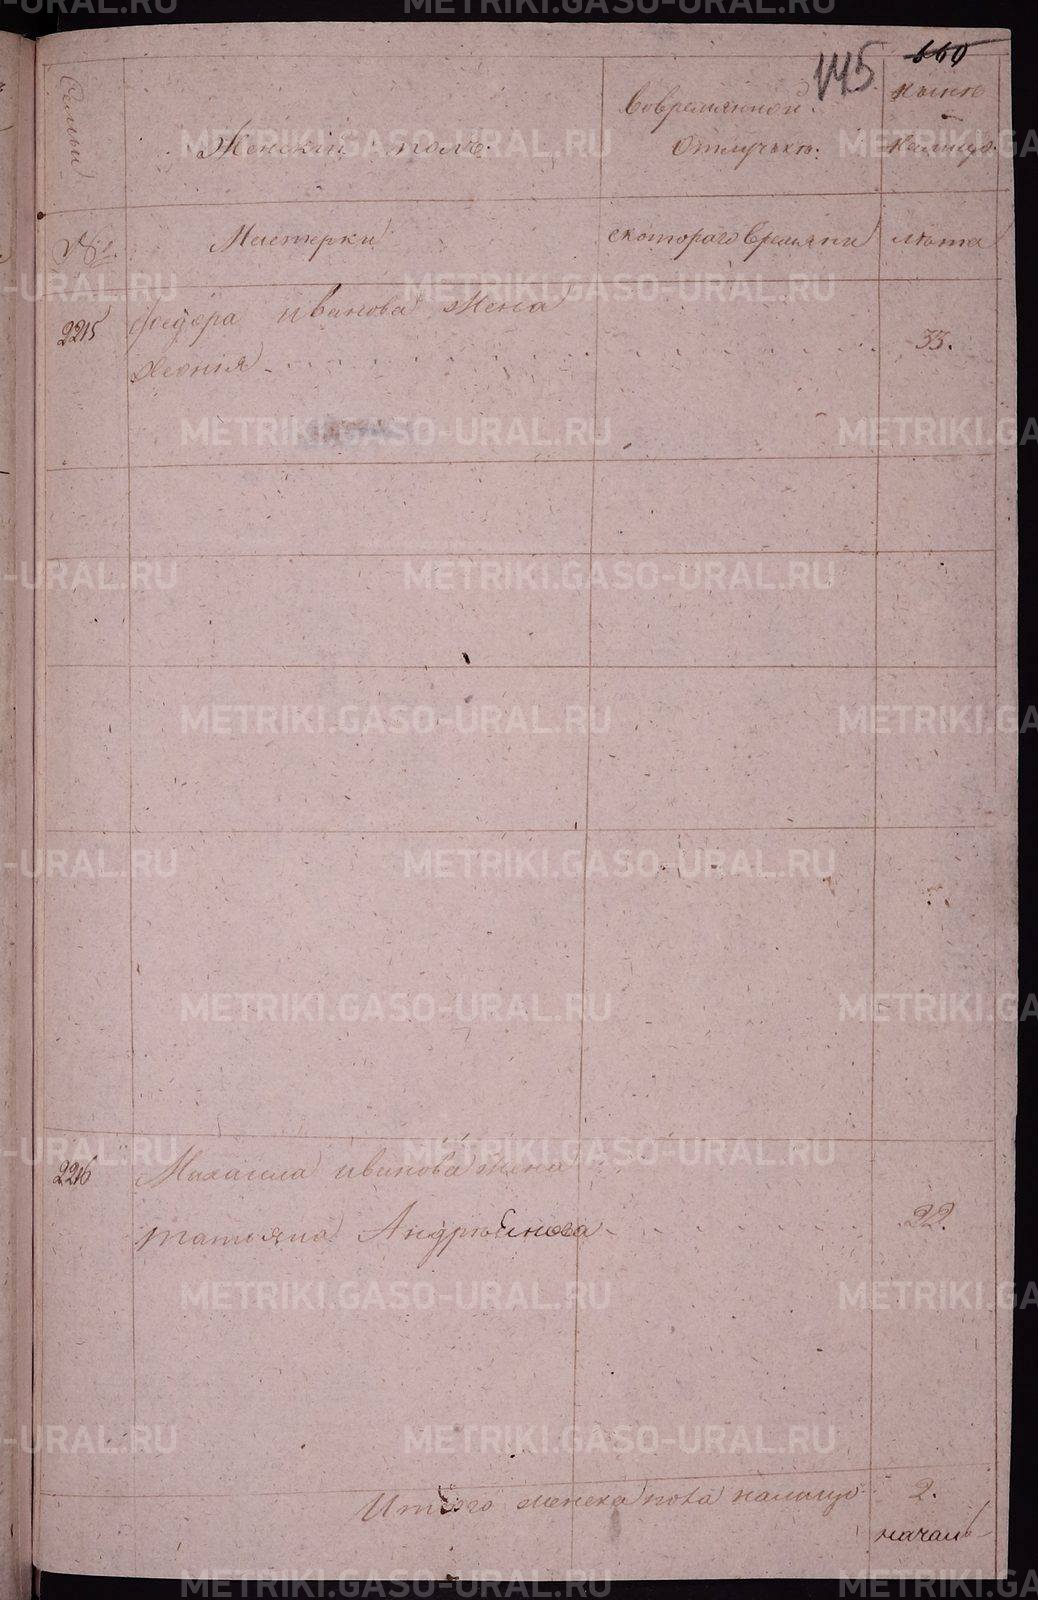 145 660
Семьи
Женский полъ.
Во временной
Отлучкѣ.
Нынѣ
На лицо.
№
Мастерки
с котораго времяни
лѣта
2215
Федора иванова жена
33.
2216
Михаила иванова жена
татьяна Андрѣенова
22.
Итого женска пола налицо 2.
METRIKI.GASO-URAL.RU